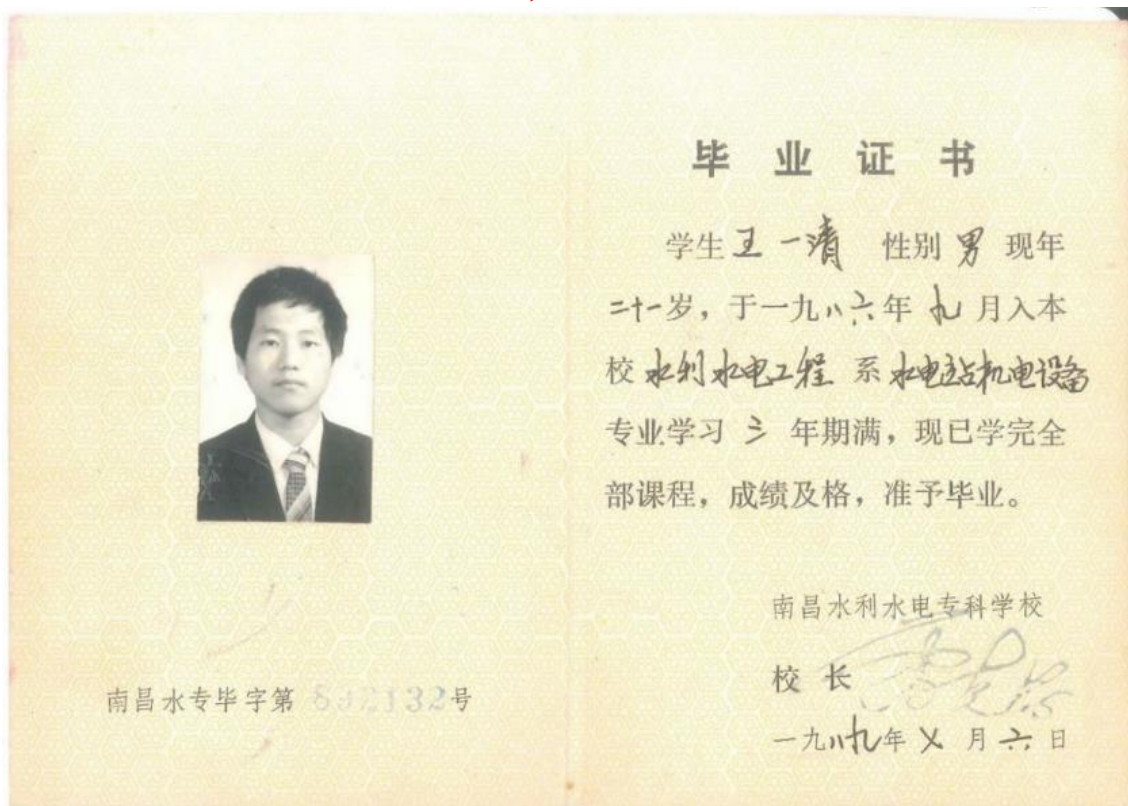 毕业证书
学生王一清 性别男现年
二十一岁，于一九八六年九月入本
校水利水电工程系水电站机电设备
专业学习三年期满，现已学完全
部课程，成绩及格，准予毕业。
南昌水利水电专科学校
校长
一九八九年七月六日
南昌水专毕字第892132号